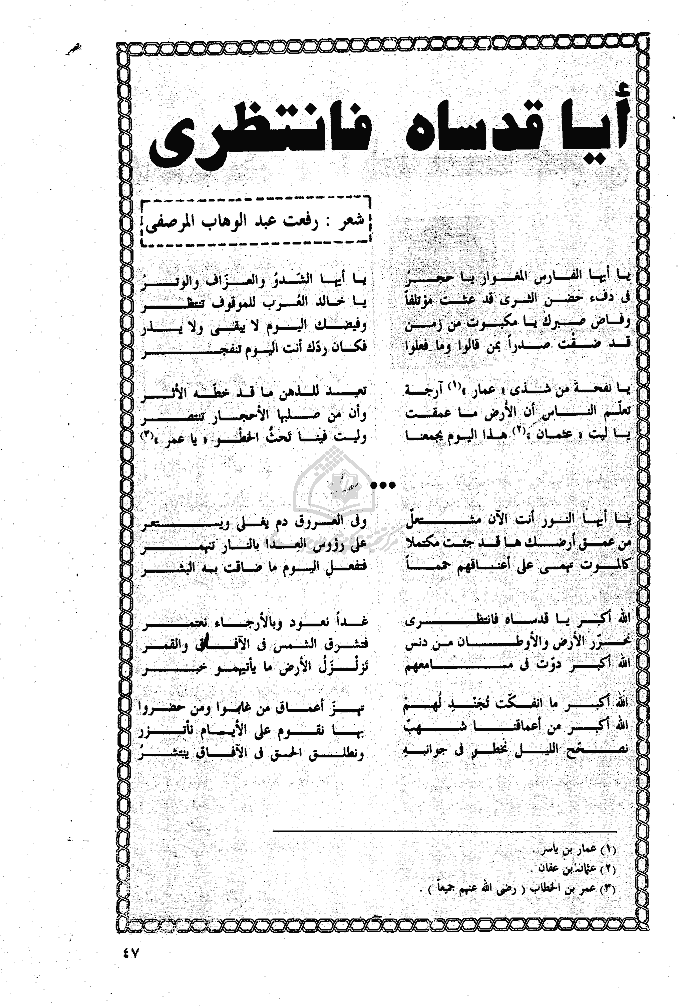 أيا قدساه فانتظرى
شعر : رفعت عبد الوهاب المرصفى
يا أيها الفارس المغوار يا حجر يا أيها الشدو والعزاف والوتر
فى دفء حضن الثرى قد عشت مؤتلفاً يا خالد العُرب للموقوف تنتظر
وفاض صبرك يا مكبوت من زمن وفيضك اليوم لا يبقى ولا يذر
قد ضقت صدراً بمن قالوا وما فعلوا فكان ردك أنت اليوم تنفجر
يا نفحة من شذى « عمار »(١) آرجة تعيد للذهن ما قد خطه الأثر
تعلّم الناس أن الأرض ما عمقت وأن من صلبها الأحجار تنتصر
يا ليت « عثمان »(٢) هذا اليوم يجمعنا وليت فينا تحثُ الخطو « يا عمر »(٣)
•••
يا أيها النور أنت الآن مشتعل وفى العروق دم يغلى ويستعر
من عمق أرضك ها قد جئت مكتملا على رؤوس العدا بالنار تنهمر
كالموت تهمى على أعناقهم حمماً فتفعل اليوم ما ضاقت به البشر
الله أكبر يا قدساه فانتظرى غداً نعود وبالأرجاء نعتمر
نحرّر الأرض والأوطان من دنس فتشرق الشمس فى الآفاق والقمر
الله أكبر دوّت فى مسامعهم تزلْزلُ الأرض ما يأتيهمو خبر
الله أكبر ما انفكّت تُجَنْدِلُهمْ تهزّ أعماق من غابوا ومن حضروا
الله أكبر من أعماقنا شهبٌ بها نقوم على الأيام نأتزر
نصحح الليل نخطو فى جوانبه ونطلق الحق فى الآفاق ينتشرُ
(١) عمار بن ياسر .
(٢) عثمان بن عفان .
(٣) عمر بن الخطاب ( رضى الله عنهم جميعاً ) .
٤٧